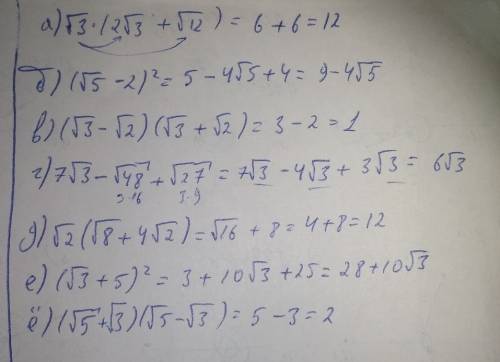 а) √3·(2√3 + √12) = 6 + 6 = 12
б) (√5 - 2)² = 5 - 4√5 + 4 = 9 - 4√5
в) (√3 - √2)(√3 + √2) = 3 - 2 = 1
г) 7√3 - √48 + √27 = 7√3 - 4√3 + 3√3 = 6√3
3·16 3·9
д) √2(√8 + 4√2) = √16 + 8 = 4 + 8 = 12
е) (√3 + 5)² = 3 + 10√3 + 25 = 28 + 10√3
ё) (√5 + √3)(√5 - √3) = 5 - 3 = 2